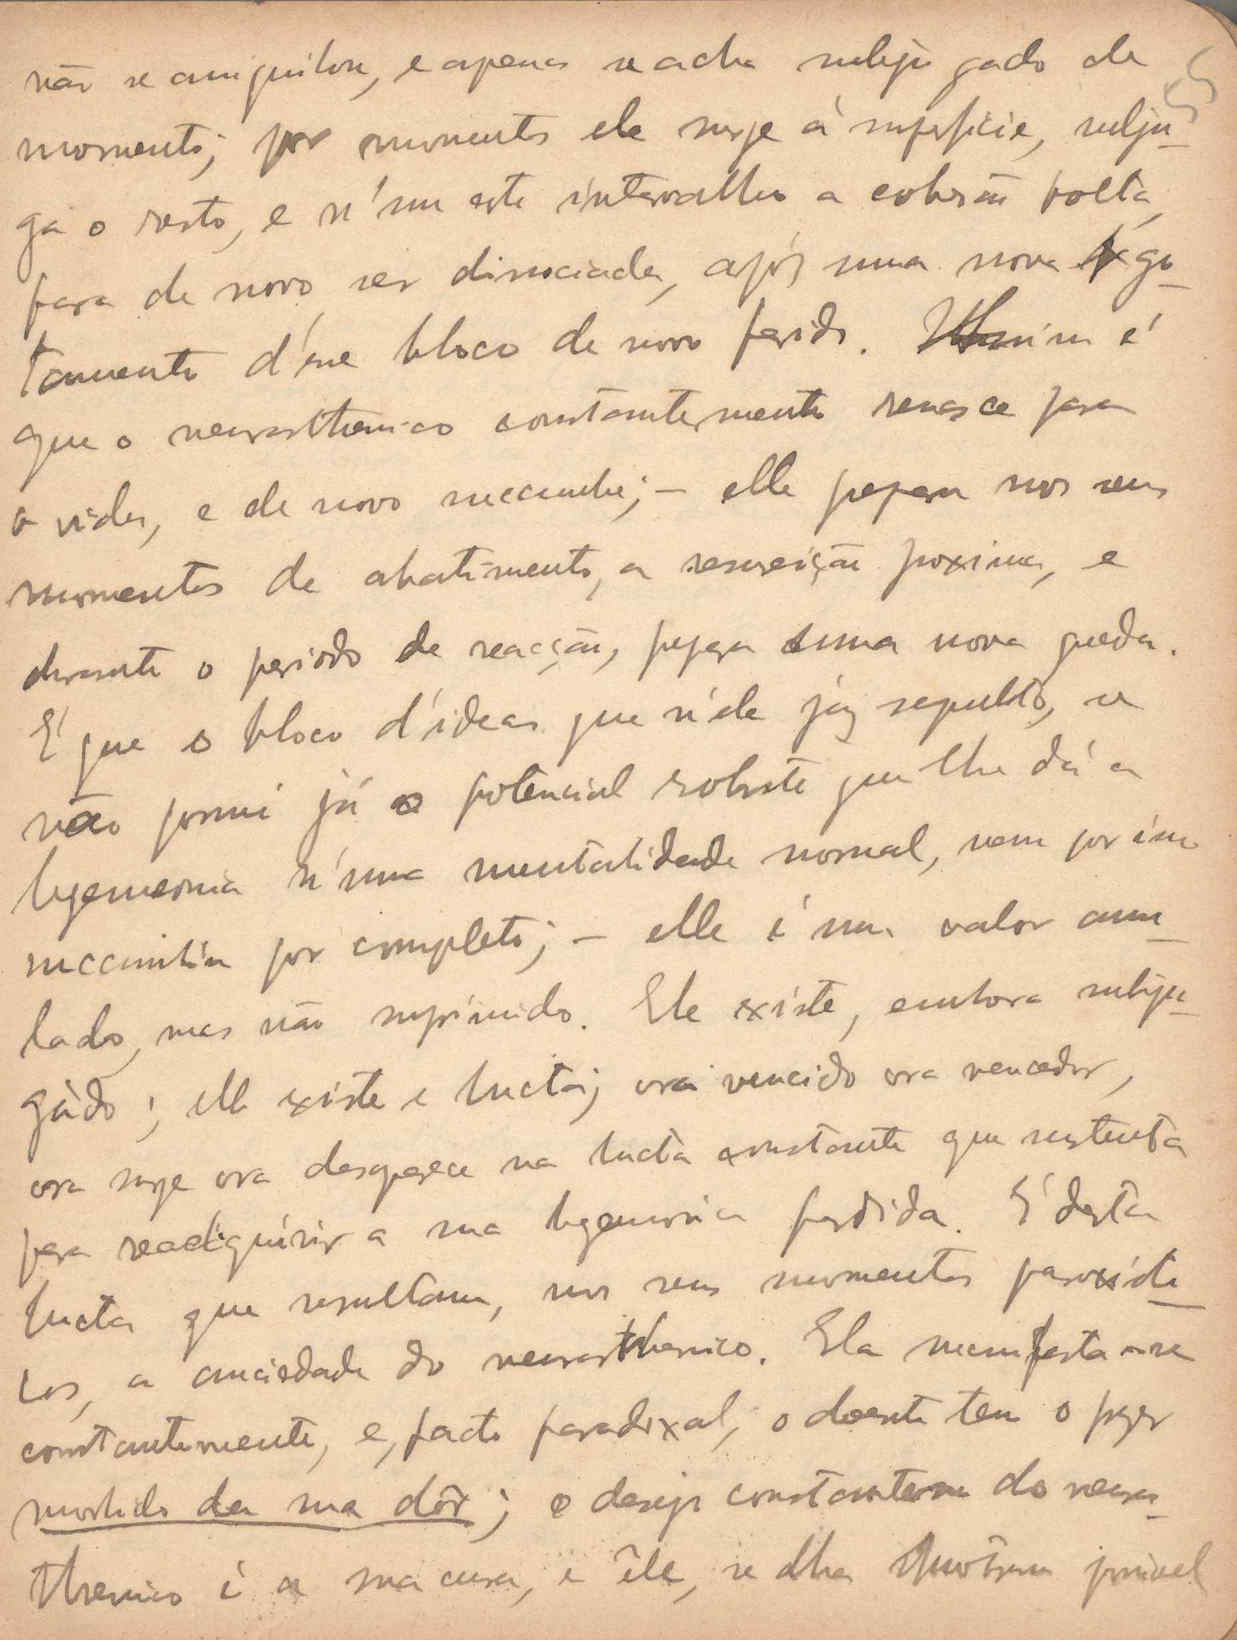 não se aniquilou, e apenas se acha subjugado de
momento; por momentos ele surge á superficie, subju-
ga o resto, e n'um este intervallo a cohesão volta,
para de novo ser dissociada, após uma nova esgo-
tamento d'esse bloco de novo ferido. Assim é
que o neurasthenico constantemente renasce para
a vida, e de novo succumbe; – elle prepara nos seus
momentos de abatimento, a resureição proxima, e
durante o periodo de reacção, prepara uma nova queda.
É que o bloco d'ideas que n'ele jáz sepulto, se
não possui já o potencial robusto que lhe dá a
hegemonia n'uma mentalidade normal, nem por isso
succumbiu por completo; – elle é um valor annu-
lado, mas não suprimido. Ele existe, embora subju-
gádo; elle existe e lucta; ora vencido ora vencedor,
ora surge ora desaparece na lucta constante que sustenta
para readquirir a sua hegemonia perdida. É desta
lucta que resultam, nos seus momentos
a anciedade do neurasthenico. Ela manifesta-se
constantemente, e, facto paradoxal, o doente tem o prazer
morbido da sua dôr; o desejo constante do neuras-
thenico é a sua cura, e êle, se lha possivel